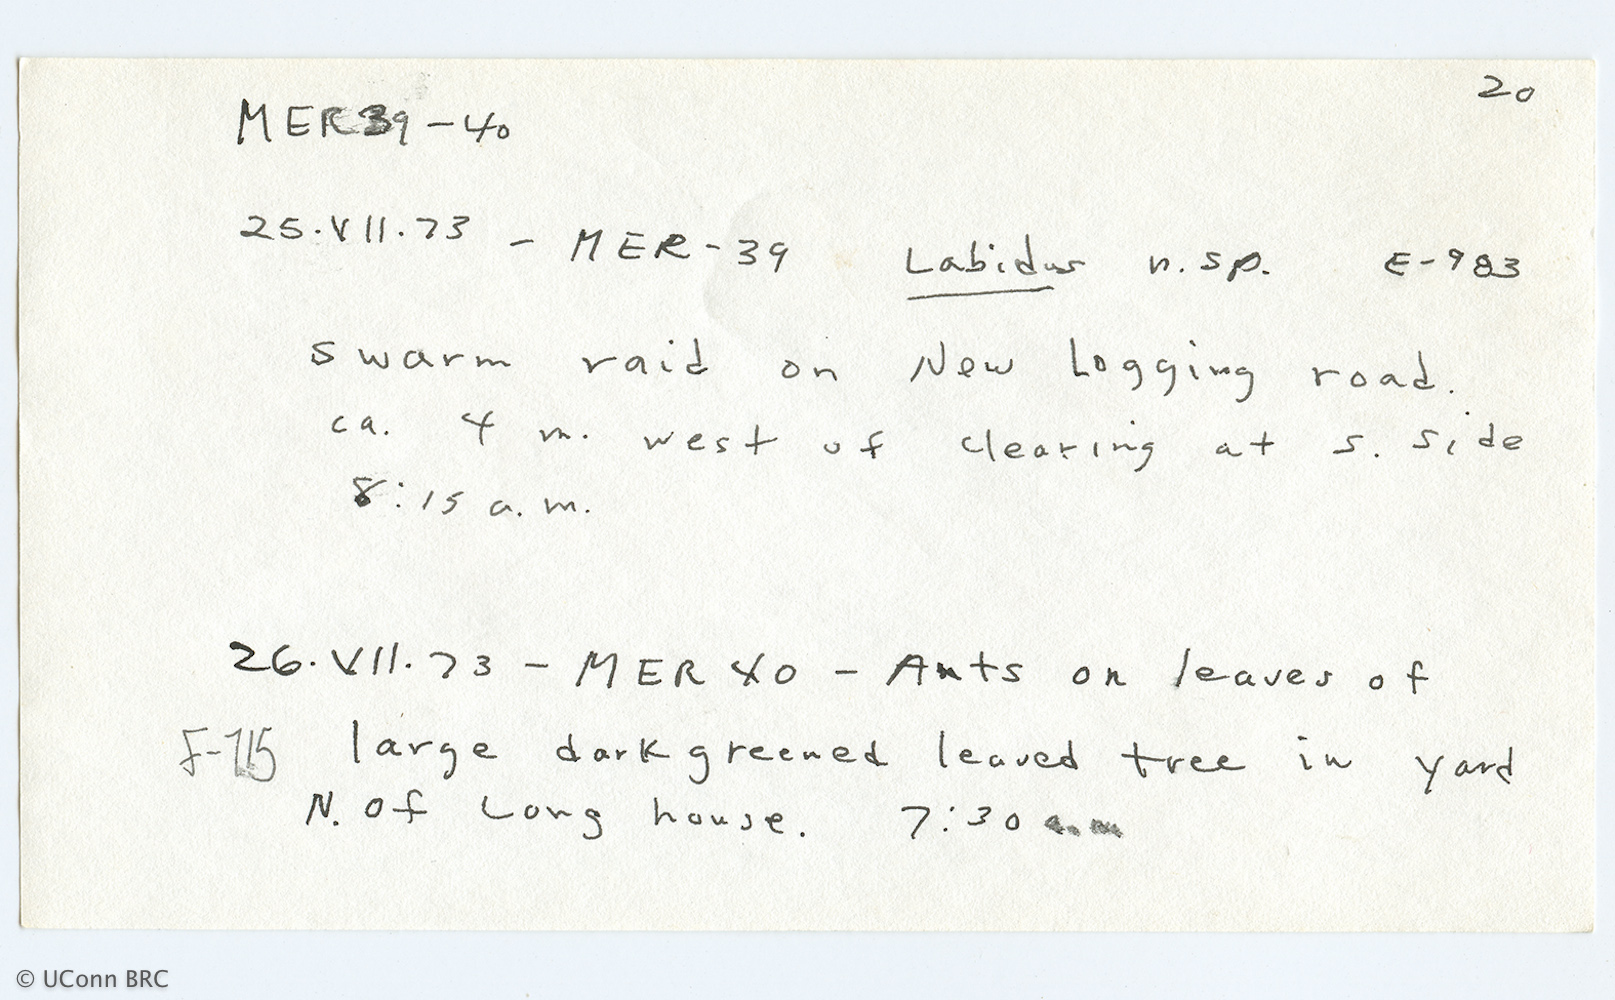 20
MER39-40
25.VII.73 - MER-39 Labidus n.sp. E-983
swarm raid on New Logging road.
ca. 4 m. west of clearing at s. side
8:15 a.m.
26.VII.73 - MER 40 - Ants on leaves of
F-715 large dark greened leaved tree in yard
N. of Long house. 7:30 a.m
© UConn BRC